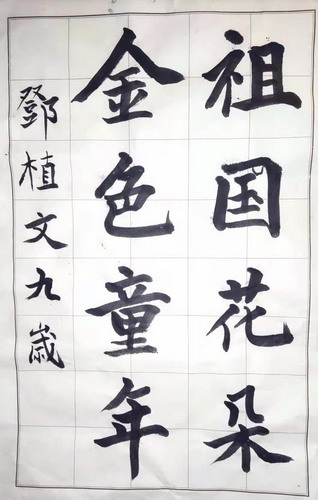 祖国花朵
金色童年
鄧植文九歳